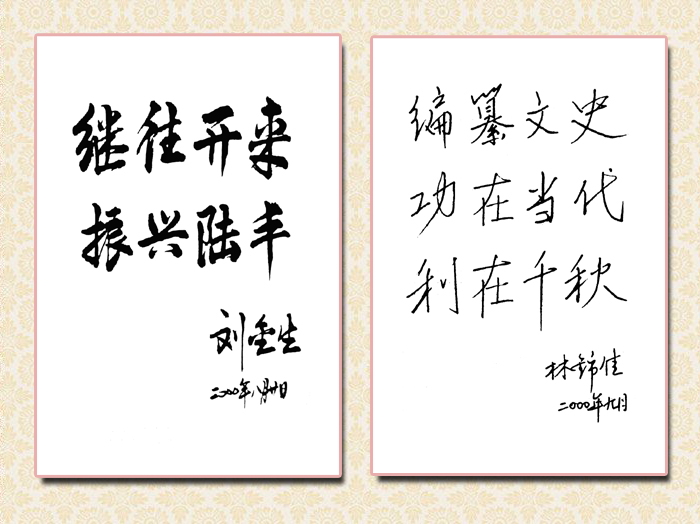 继往开来
振兴陆丰
刘金生
二000年八月廿日
编纂文史
功在当代
利在千秋
林锦佳
二000年九月